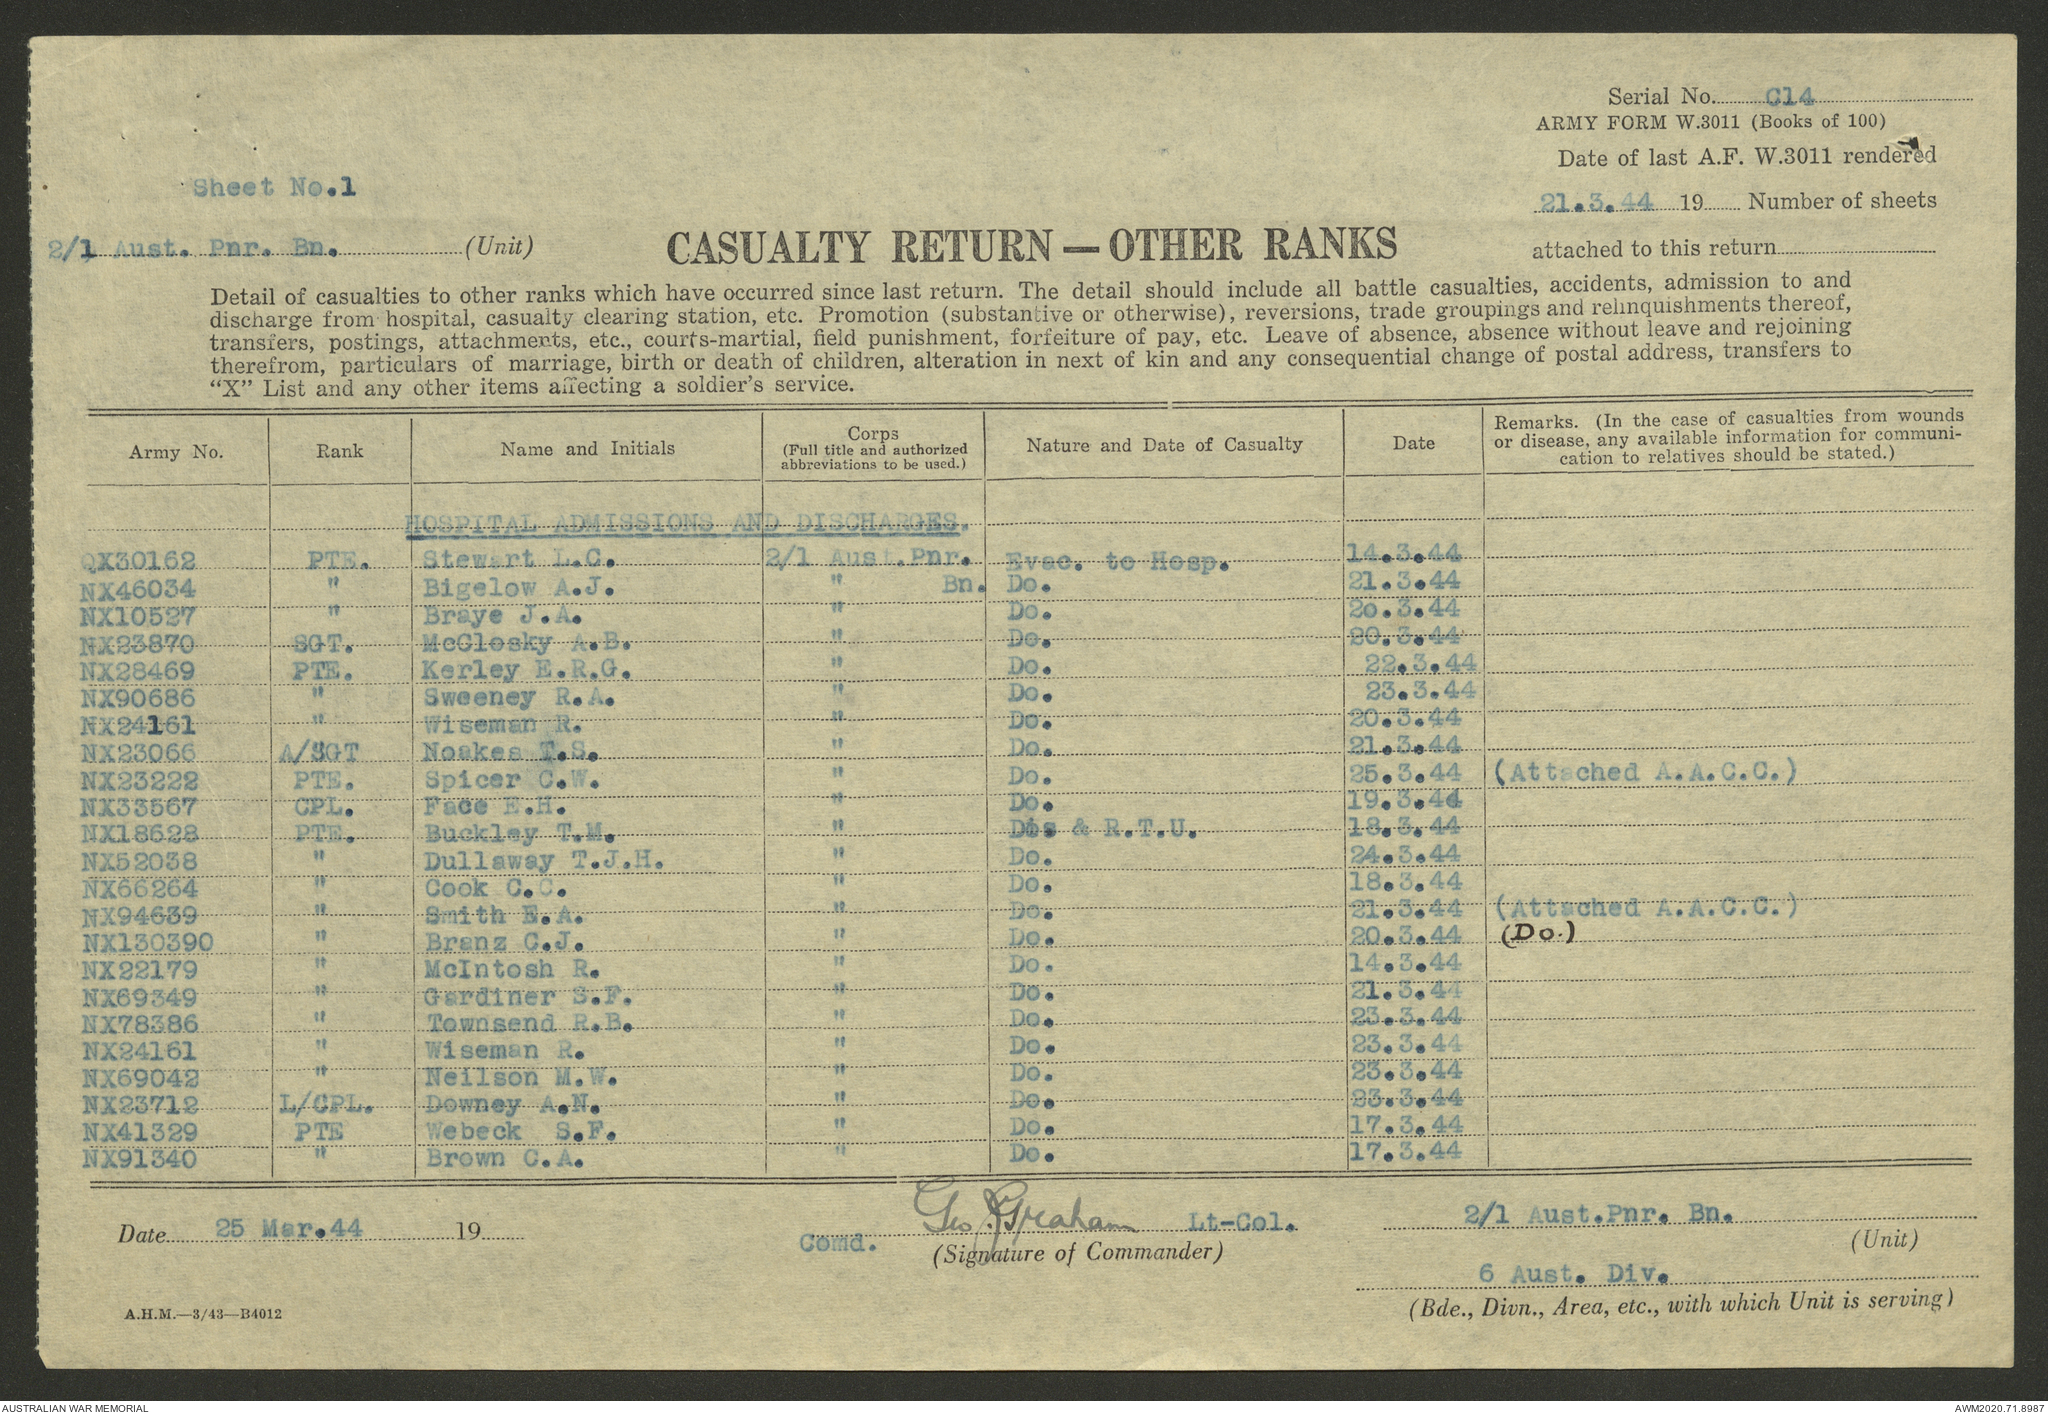 Serial No. C14
ARMY FORM W.3011 (Books of 100)
Date of last A.F. W.3011 rendered
Sheet No.1
21.3.44 19 Number of sheets
2/1 Aust. Pnr. Bn. (Unit)
CASUALTY RETURN — OTHER RANKS
attached to this return
Detail of casualties to other ranks which have occurred since last return. The detail should include all battle casualties, accidents, admission to and
discharge from hospital, casualty clearing station, etc. Promotion (substantive or otherwise), reversions, trade groupings and relinquishments thereof,
transfers, postings, attachments, etc., courts-martial, field punishment, forfeiture of pay, etc. Leave of absence, absence without leave and rejoining
therefrom, particulars of marriage, birth or death of children, alteration in next of kin and any consequential change of postal address, transfers to
“X” List and any other items affecting a soldier's service.
Army No. Rank Name and Initials Corps (Full title and authorized abbreviations to be used.) Nature and Date of Casualty Date Remarks. (In the case of casualties from wounds or disease, any available information for communi- cation to relatives should be stated.)
HOSPITAL ADMISSIONS AND DISCHARGES.
QX30162 PTE. Stewart L.C. 2/1 Aust.Pnr. Evac. to Hosp. 14.3.44
NX46034 " Bigelow A.J. " Bn. Do. 21.3.44
NX10527 " Braye J.A. " Do. 20.3.44
NX23870 SGT. McClosky A.B. " Do. 20.3.44
NX28469 PTE. Kerley E.R.G. " Do. 22.3.44
NX90686 " Sweeney R.A. " Do. 23.3.44
NX24161 " Wiseman R. " Do. 20.3.44
NX23066 A/SGT Noakes T.S. " Do. 21.3.44
NX23222 PTE. Spicer C.W. " Do. 25.3.44 (Attached A.A.C.C.)
NX33567 CPL. Face E.H. " Do. 19.3.44
NX18628 PTE. Buckley T.M. " Dis & R.T.U. 18.3.44
NX52038 " Dullaway T.J.H. " Do. 24.3.44
NX66264 " Cook C.C. " Do. 18.3.44
NX94639 " Smith E.A. " Do. 21.3.44 (Attached A.A.C.C.)
NX130390 " Branz C.J. " Do. 20.3.44 (Do.)
NX22179 " McIntosh R. " Do. 14.3.44
NX69349 " Gardiner S.F. " Do. 21.3.44
NX78386 " Townsend R.B. " Do. 23.3.44
NX24161 " Wiseman R. " Do. 23.3.44
NX69042 " Neilson M.W. " Do. 23.3.44
NX23712 L/CPL. Downey A.N. " Do. 23.3.44
NX41329 PTE Webeck S.F. " Do. 17.3.44
NX91340 " Brown C.A. " Do. 17.3.44
Date 25 Mar.44 19
Geo J Graham Lt-Col.
Comd.
(Signature of Commander)
2/1 Aust.Pnr. Bn.
(Unit)
6 Aust. Div.
(Bde., Divn., Area, etc., with which Unit is serving)
A.H.M.—3/43—B4012
AUSTRALIAN WAR MEMORIAL
AWM2020.71.8987